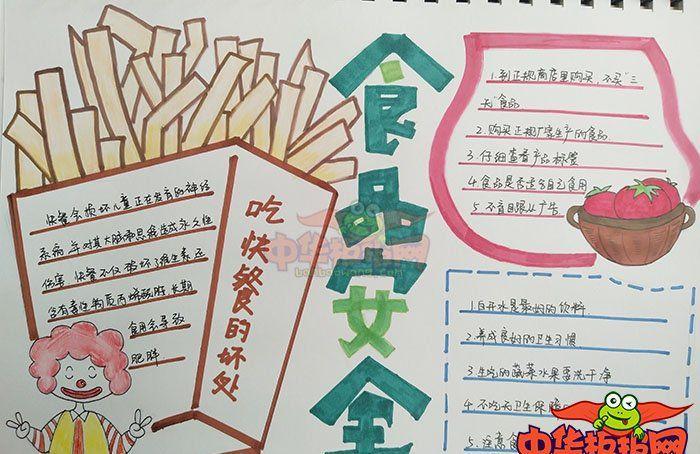 食品安全
吃快餐的坏处
快餐会损坏儿童正在发育的神经
系统,并对其大脑和思维造成永久性
伤害 快餐不仅破坏了维生素 还
含有毒性物质丙烯酰胺 长期
食用会导致
肥胖
1.到正规商店里购买,不买"三
无"食品
2.购买正规厂家生产的食品
3.仔细查看产品标签
4.食品是否适合自己食用
5.不盲目跟从广告
1.白开水是最好的饮料
2.养成良好的卫生习惯
3.生吃的蔬菜水果要洗干净
4.不吃无卫生保障
5.注意食
中华板报网
benbaowang.com
中华板报网